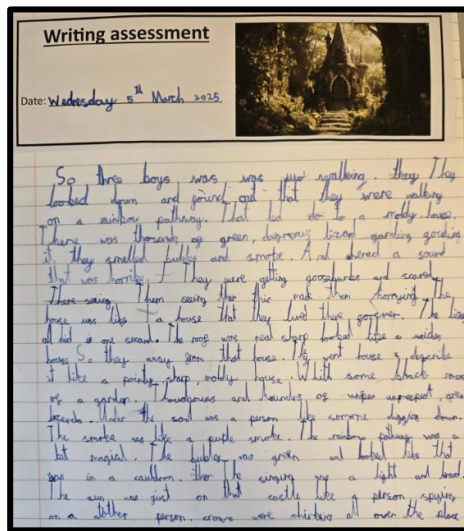 Writing assessment
Date: Wednesday 5th March 2025
So three boys was was just walking. they They
looked down and found out that they were walking
on a rainbow pathway. That led do to a moldy house.
There was thousands of green, lizard garding garding
it, they smelled and smoke. And ahered a sound
that was horrible. They were getting goosebumps and scared.
There seeing Them seeing that this made them The
house was like a house that they lived there forever. The
all did in one second. The roof was real sharp looked like a
house So they away from that house. went house is describe
it like a pointy sharp, moldy house. Whith some black
of a garden. and of
. Under the soil was a person like someone digging down.
The smoke was like a puple smoke. The rainbow pathway was a
bit magical. The was green and looked like that
was in a cauldron. The singing a light and
The sun was just on that like a person spying
on a person. crows were all over the place